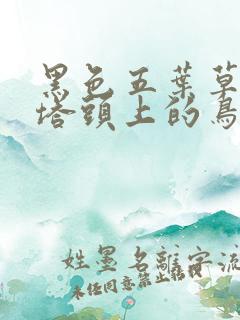 黑色五葉草
塔頭上的鳥
姓墨名離字流
未任同意禁止轉載